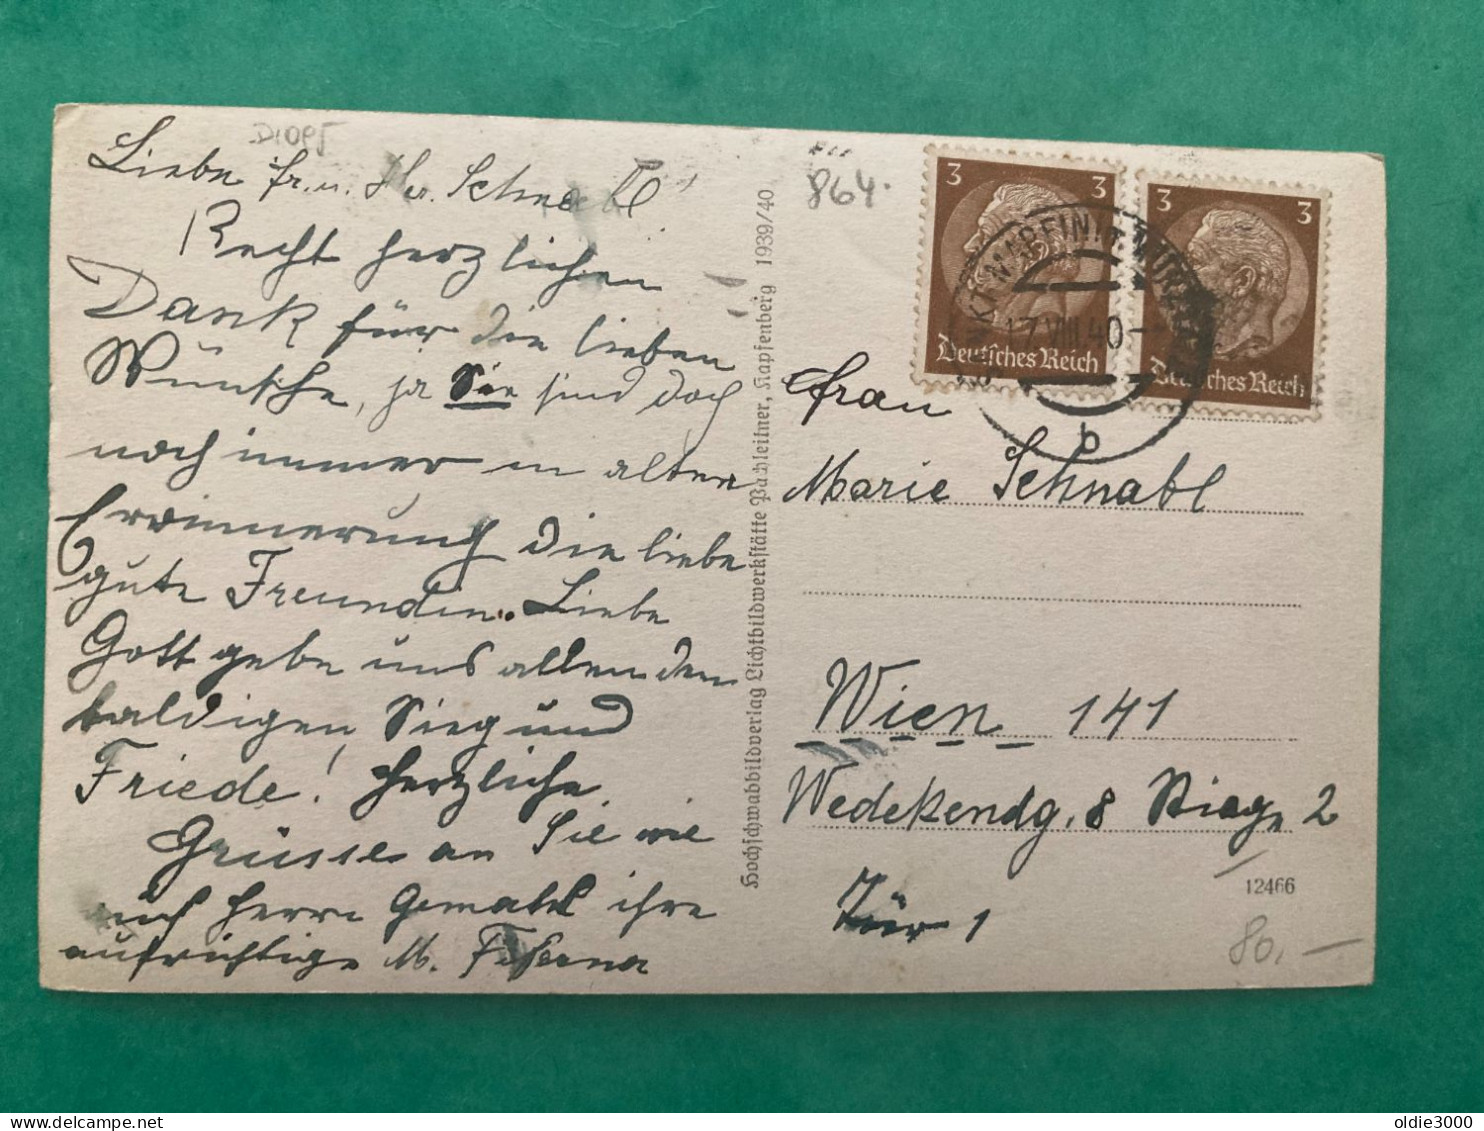 D1095
Liebe Fr. u. Hr. Schnabl!
Recht herzlichen
Dank für die lieben
Wünsche, ja Sie sind doch
noch immer in alter
Erinnerung die liebe
gute Freundin. Liebe
Gott gebe uns allen den
baldigen Sieg und
Friede! Herzliche
Grüsse an Sie wie
auch Herrn Gemahl ihre
aufrichtige M.
Hochschwabbildverlag Lichtbildwerkstätte Pachleitner, Kapfenberg 1939/40
864.
3 3
Deutsches Reich
3 3
Deutsches Reich
SANKT MAREIN
17.VIII.40
b
Frau
Marie Schnabl
Wien 141
Wedekendg. 8 Stiege 2
Tür 1
12466
80,–
oldie3000